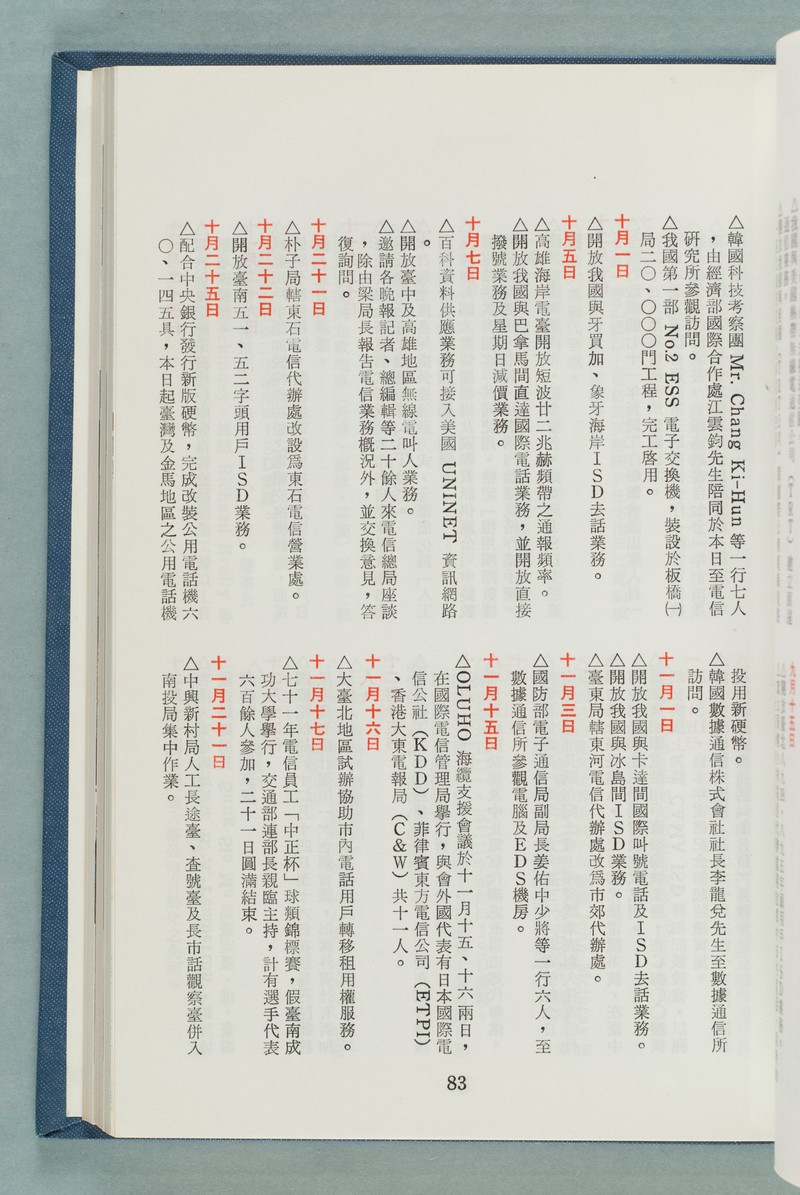 △韓國科技考察團 Mr. Chang Ki-Hun 等一行七人
，由經濟部國際合作處江雲鈞先生陪同於本日至電信
研究所參觀訪問。
△我國第一部 No.2 ESS 電子交換機，裝設於板橋㈠
局二〇、〇〇〇門工程，完工啓用。
十月一日
△開放我國與牙買加、象牙海岸ＩＳＤ去話業務。
十月五日
△高雄海岸電臺開放短波廿二兆赫頻帶之通報頻率。
△開放我國與巴拿馬間直達國際電話業務，並開放直接
撥號業務及星期日減價業務。
十月七日
△百科資料供應業務可接入美國 UNINET 資訊網路
。
△開放臺中及高雄地區無線電叫人業務。
△邀請各晚報記者、總編輯等二十餘人來電信總局座談
，除由梁局長報告電信業務概況外，並交換意見，答
復詢問。
十月二十一日
△朴子局轄東石電信代辦處改設爲東石電信營業處。
十月二十二日
△開放臺南五一、五二字頭用戶ＩＳＤ業務。
十月二十五日
△配合中央銀行發行新版硬幣，完成改裝公用電話機六
〇、一四五具，本日起臺灣及金馬地區之公用電話機
投用新硬幣。
△韓國數據通信株式會社社長李龍兌先生至數據通信所
訪問。
十一月一日
△開放我國與卡達間國際叫號電話及ＩＳＤ去話業務。
△開放我國與冰島間ＩＳＤ業務。
△臺東局轄東河電信代辦處改爲市郊代辦處。
十一月三日
△國防部電子通信局副局長姜佑中少將等一行六人，至
數據通信所參觀電腦及ＥＤＳ機房。
十一月十五日
△OLUHO 海纜支援會議於十一月十五、十六兩日，
在國際電信管理局舉行，與會外國代表有日本國際電
信公社（ＫＤＤ）、菲律賓東方電信公司（ETPI）
、香港大東電報局（Ｃ＆Ｗ）共十一人。
十一月十六日
△大臺北地區試辦協助市內電話用戶轉移租用權服務。
十一月十七日
△七十一年電信員工「中正杯」球類錦標賽，假臺南成
功大學舉行，交通部連部長親臨主持，計有選手代表
六百餘人參加，二十一日圓滿結束。
十一月二十一日
△中興新村局人工長途臺、查號臺及長市話觀察臺併入
南投局集中作業。
83